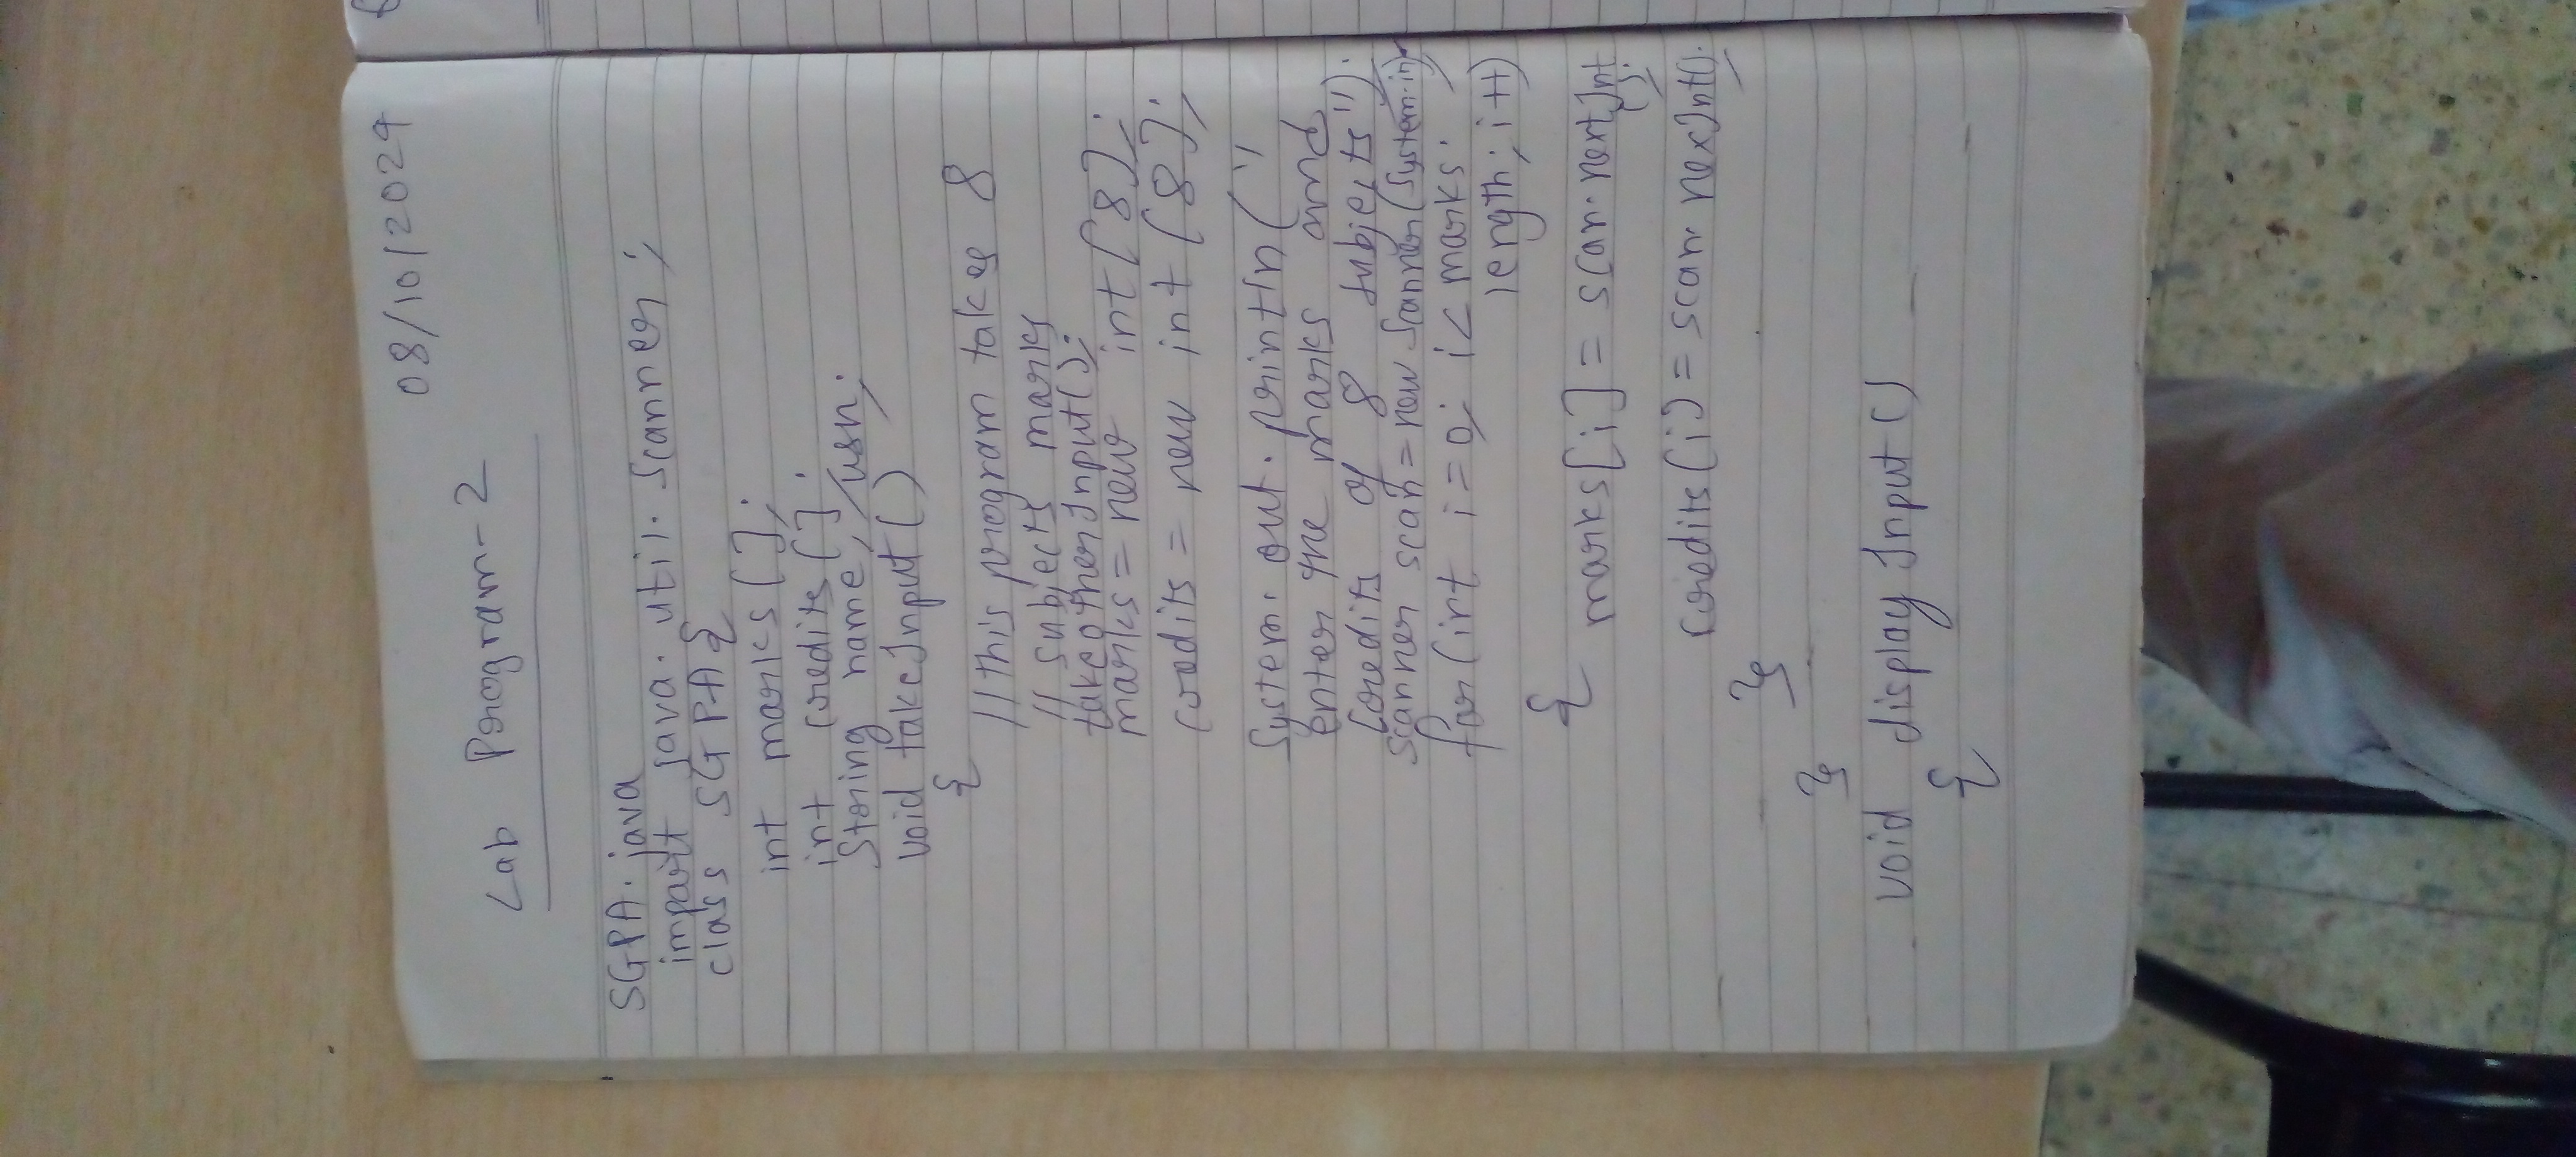 08/10/2024
Lab Program-2
SGPA.java
import java.util.Scanner;
class SGPA{
int marks[];
int credits[];
String name, usn;
void takeInput()
{
//this program takes 8
// subjects marks
takeotherInput();
marks = new int[8];
credits = new int[8];
System.out.println("
enter the marks and
credits of 8 subjects");
Scanner scan = new Scanner(System.in);
for(int i=0; i<marks.
length; i++)
{
marks[i] = scan.nextInt
();
credits[i] = scan nextInt();
}
}
void displayInput()
{